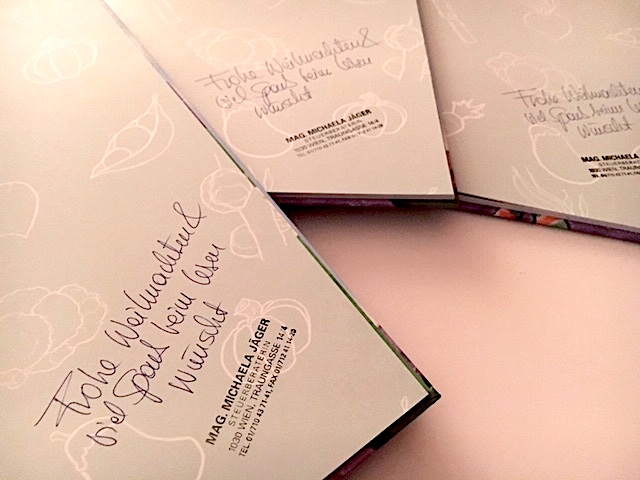 Frohe Weihnachten &
viel Spass beim lesen
wünscht
MAG. MICHAELA JÄGER
STEUERBERATERIN
1030 WIEN, TRAUNGASSE 14-4
TEL. 01/710 43 71-41, FAX 01/712 41 14-20
Frohe Weihnachten &
viel Spass beim lesen
wünscht
MAG. MICHAELA JÄGER
STEUERBERATERIN
1030 WIEN, TRAUNGASSE 14-4
Frohe Weihnachten
viel Spass beim lesen
wünscht
MAG. MICHAELA
STEUERBERA
1030 WIEN, TRAUNGASS